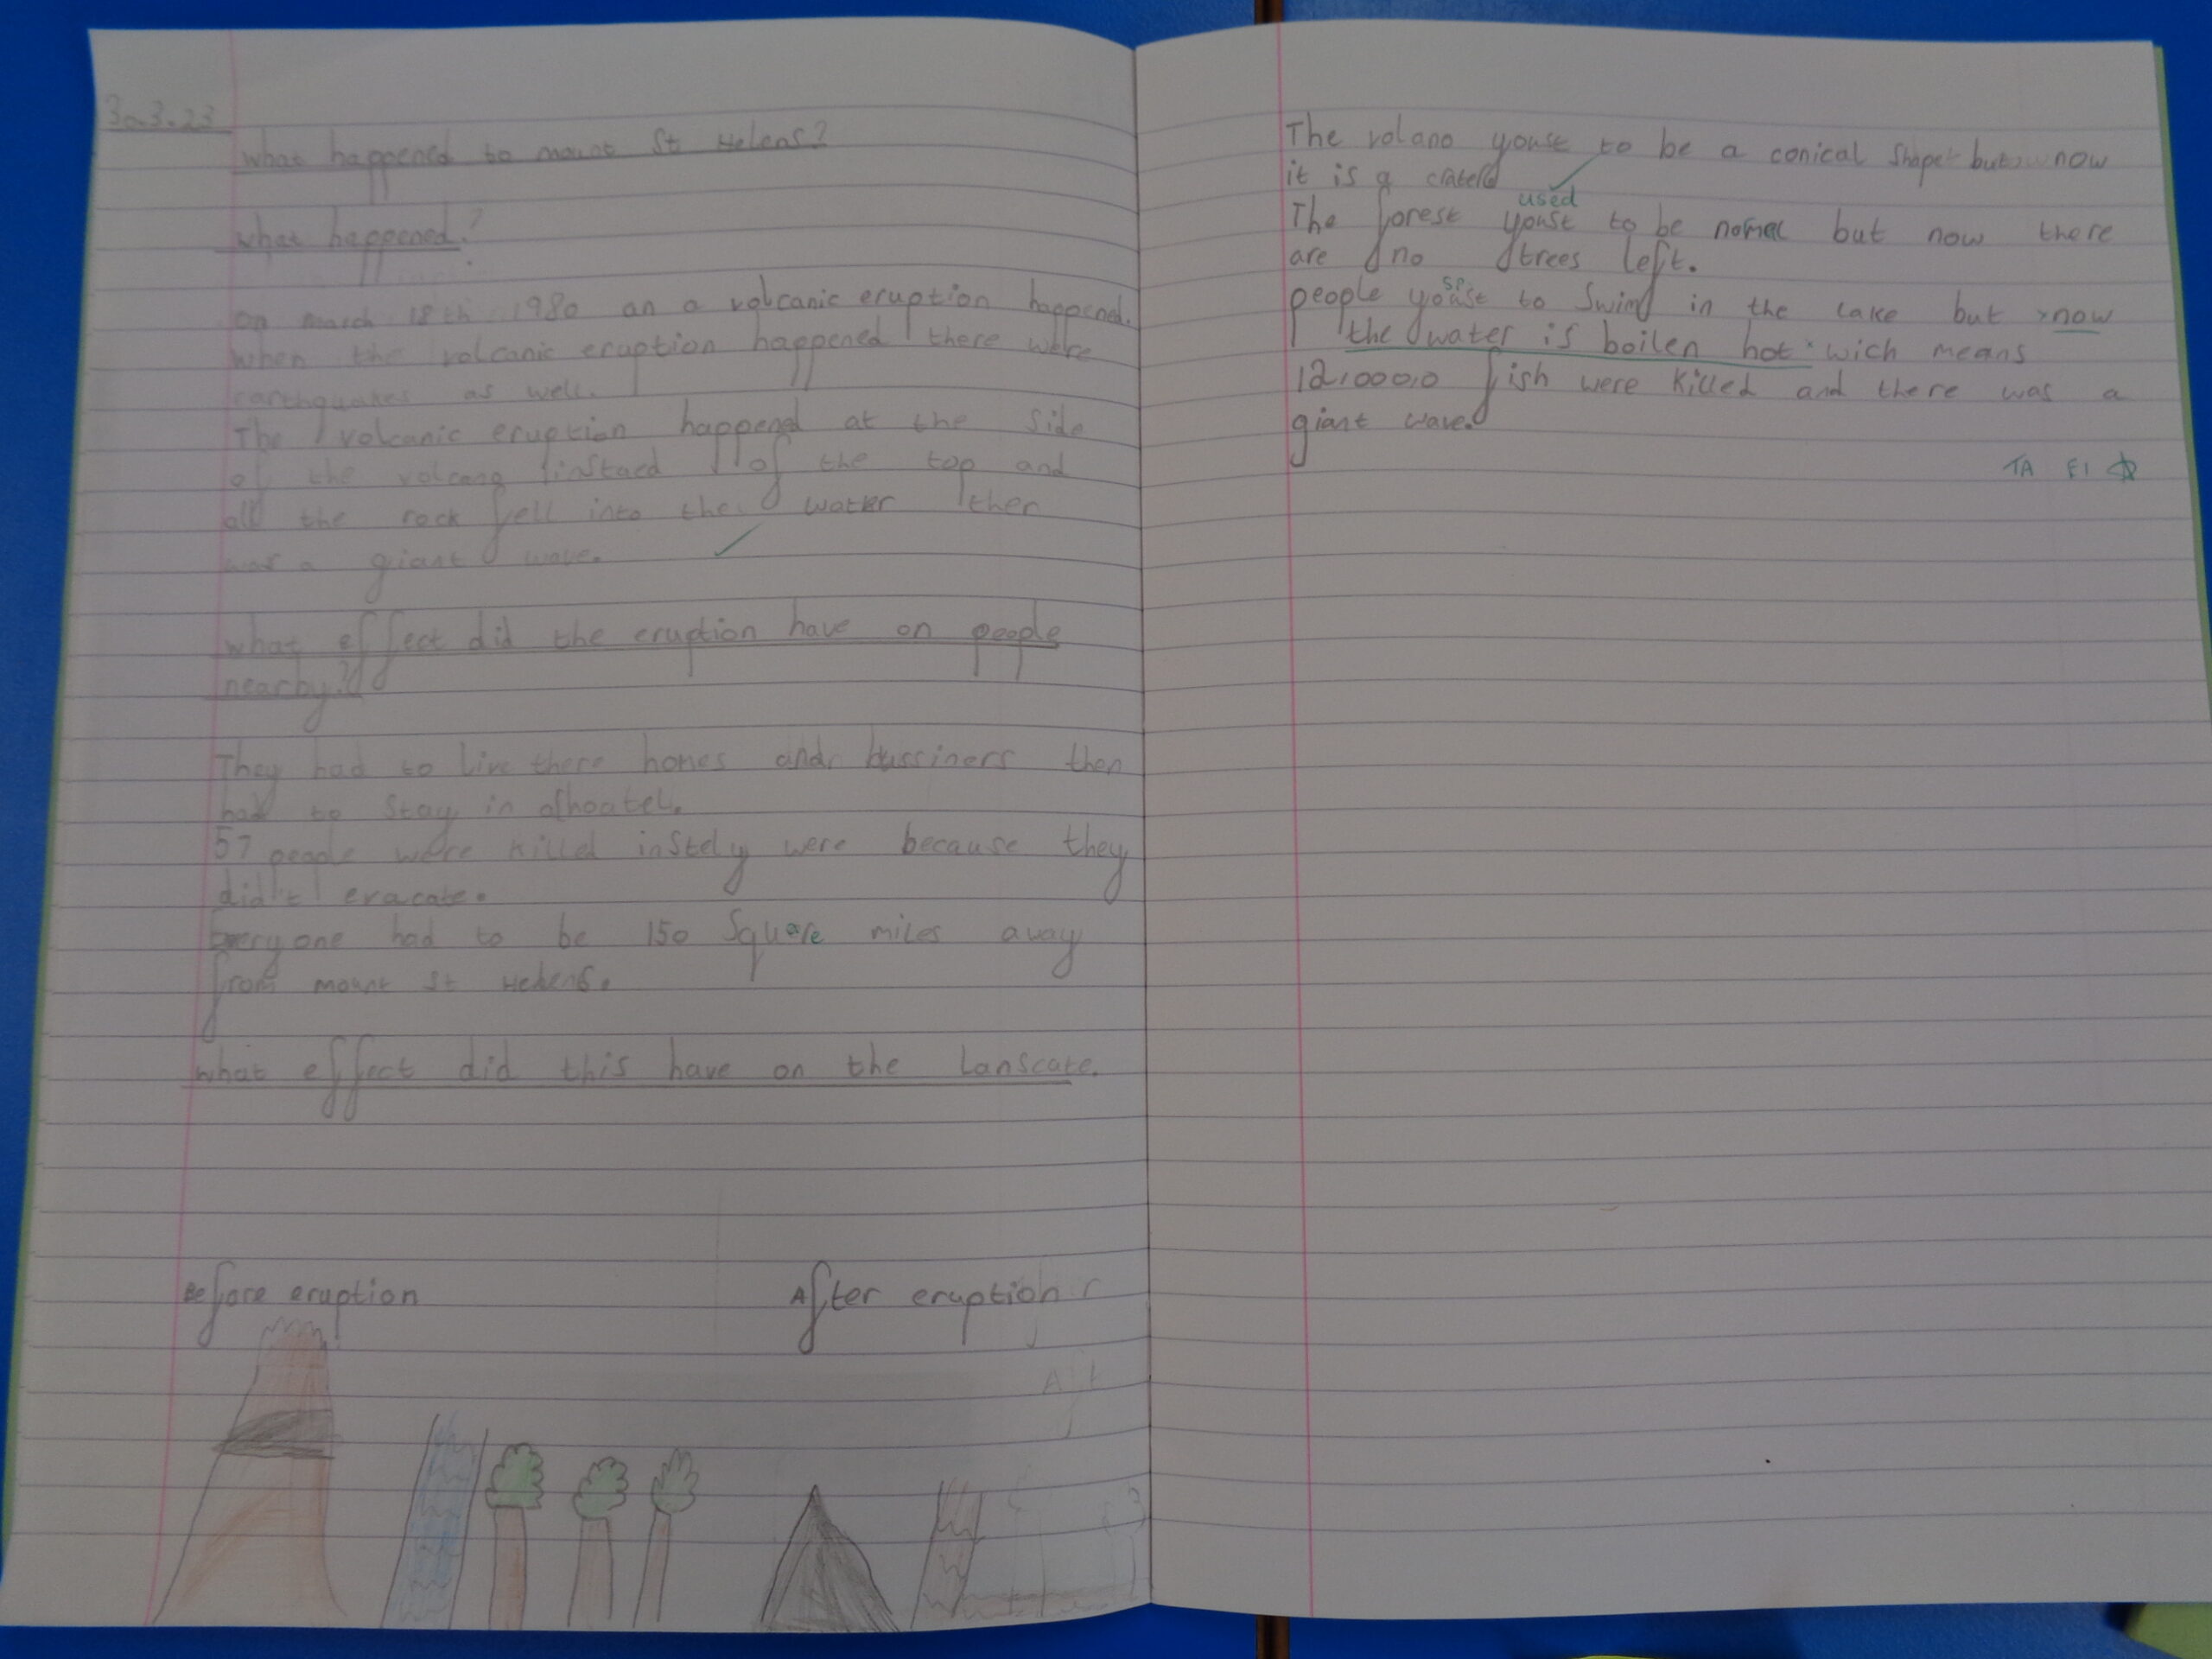 30.3.23
what happened to mount St Helens?
what happened?
on march 18th 1980 an a volcanic eruption happened.
when the volcanic eruption happened there were
earthquakes as well.
The volcanic eruption happend at the side
of the volcano instaed of the top and
all the rock fell into the water ther
was a giant wave.
what effect did the eruption have on people
nearby?
They had to live there homes and bussiners then
had to stay in a hoatel.
57 people were killed instely were because they
did't evacate.
Everyone had to be 150 Square miles away
from mount St Helens.
what effect did this have on the Lanscate.
Before eruption
After eruption
The volano youse to be a conical Shape but now
it is a crater
used
The forest youst to be normal but now there
are no trees left.
sp
people youst to Swim in the lake but now
the water is boilen hot wich means
12,000,0 fish were killed and there was a
giant wave.
TA E1